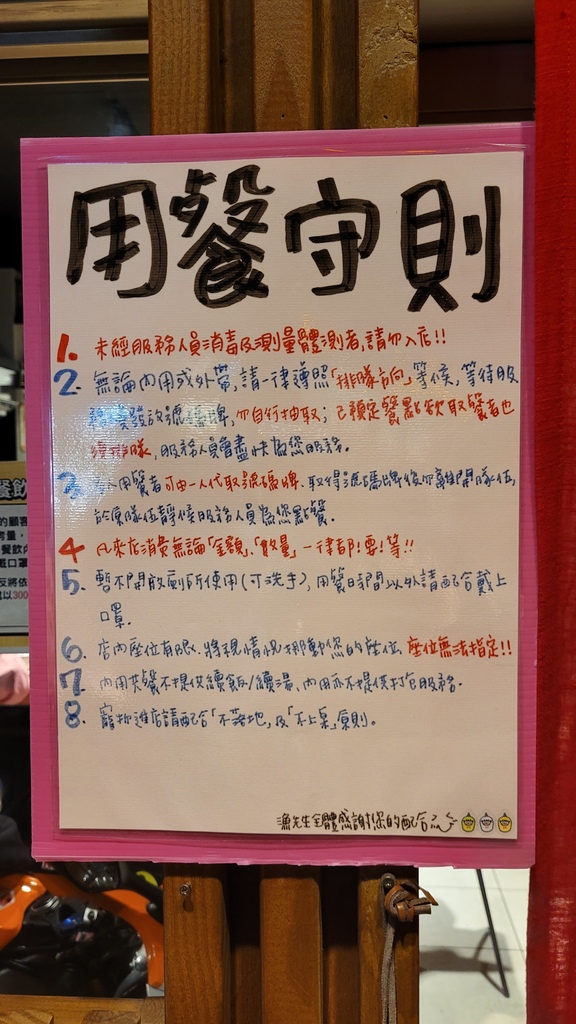 用餐守則
1. 未經服務人員消毒及測量體測者,請勿入店!!
2. 無論內用或外帶,請一律遵照「排隊方向」等候,等待服
務人員發放號碼牌,勿自行抽取;已預定餐點欲取餐者也
須排隊,服務人員會盡快為您服務。
3. 用餐者可由一人代取號碼牌.取得號碼牌後勿離開隊伍,
於原隊伍靜候服務人員為您點餐.
4 凡來店消費無論「金額」、「數量」一律都!要!等!!
5. 暫不開放廁所使用(可洗手),用餐時間以外請配合戴上
口罩.
6. 店內座位有限.將視情況挪動您的座位 座位無法指定!!
7. 內用共餐不提供續飯/續湯,內用亦不提供打包服務.
8. 寵物進店請配合「不落地」及「不上桌」原則。
漁先生全體感謝您的配合
餐飲
的顧客
口罩
300